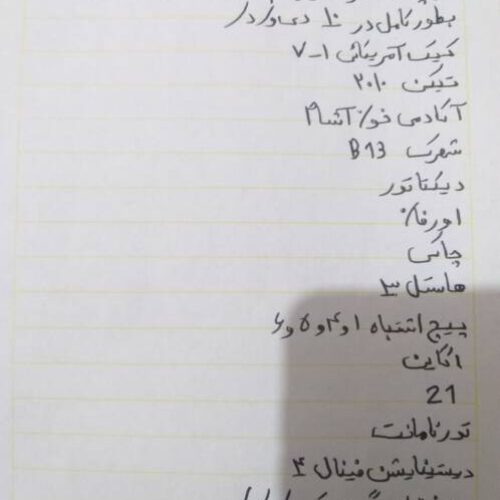 بطور کامل در
کیک آمریکائی ۱-۷
تیکن ۲۰۱۰
آکادمی خون آشام
شهرک B13
دیکتاتور
اورفان
چاکی
هاستل ۳
پیچ اشتباه ۱ و ۴ و ۵ و ۶
اگاین
21
تورنامانت
دیستینایشن فینال ۴